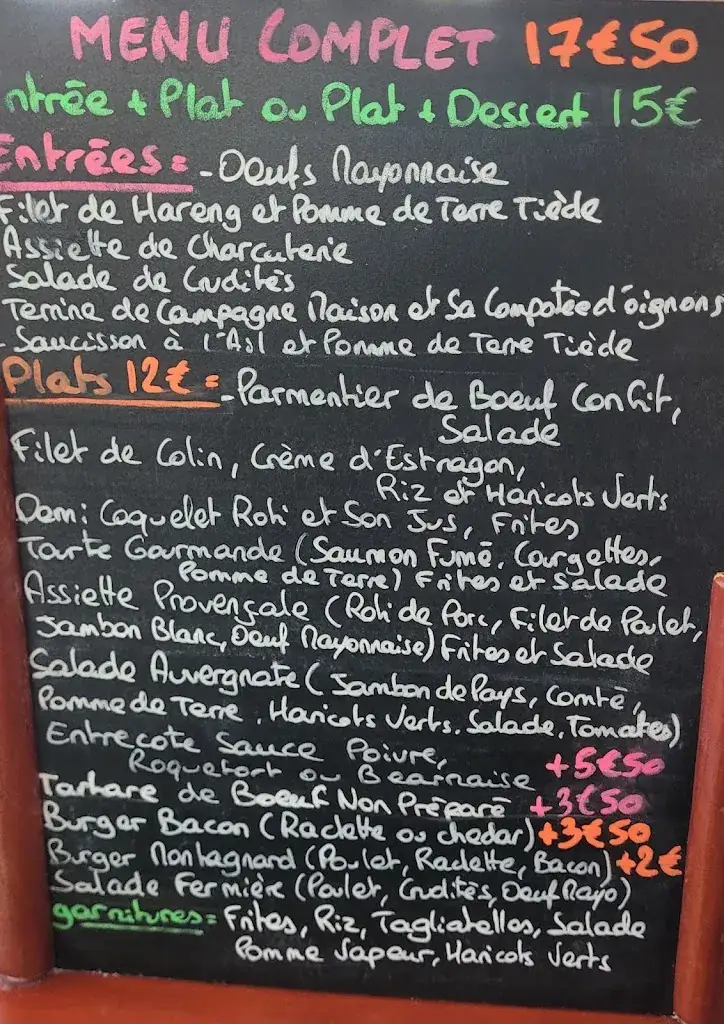 MENU COMPLET 17€50
ntrée + Plat ou Plat + Dessert 15€
Entrées = - Oeufs Mayonnaise
Filet de Hareng et Pomme de Terre Tiède
Assiette de Charcuterie
Salade de Crudités
Terrine de Campagne Maison et Sa Compotée d'oignons
- Saucisson à l'Ail et Pomme de Terre Tiède
Plats 12€ = - Parmentier de Boeuf Confit,
Salade
Filet de Colin, Crème d'Estragon,
Riz et Haricots Verts
Demi Coquelet Roti et Son Jus, Frites
Tarte Gourmande (Saumon Fumé, Courgettes,
Pomme de Terre) Frites et Salade
Assiette Provençale (Roti de Porc, Filet de Poulet,
Jambon Blanc, Oeuf Mayonnaise) Frites et Salade
Salade Auvergnate (Jambon de Pays, Comté,
Pomme de Terre, Haricots Verts, Salade, Tomates)
Entrecote Sauce Poivre,
Roquefort ou Bearnaise +5€50
Tartare de Boeuf Non Préparé +3€50
Burger Bacon (Raclette ou chedar) +3€50
Burger Montagnard (Poulet, Raclette, Bacon) +2€
Salade Fermière (Poulet, Crudités, Oeuf Mayo)
garnitures = Frites, Riz, Tagliatelles, Salade
Pomme Vapeur, Haricots Verts